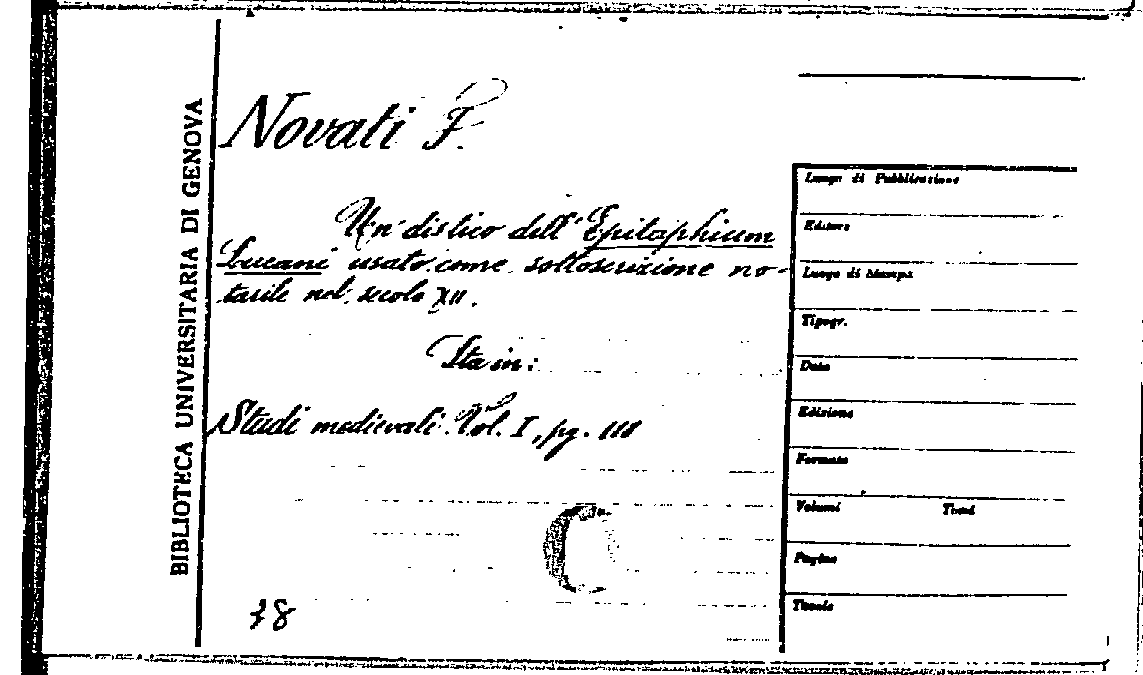 BIBLIOTECA UNIVERSITARIA DI GENOVA
Novati F.
Un distico dell'Epitaphium
Lucani usato come sottoscrizione no-
tarile nel secolo XII.
Sta in:
Studi medievali. Vol. I, pg. 111
C
38
Luogo di Pubblicazione
Editore
Luogo di Stampa
Tipogr.
Data
Edizione
Formato
Volumi Tomi
Pagine
Tavole